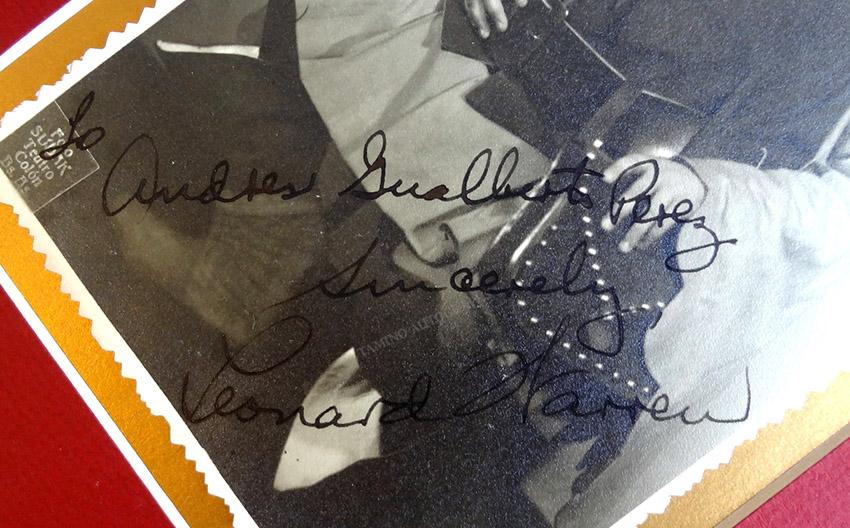 To
Andres Gualberto Perez
Sincerely
Leonard Warren
Foto
Teatro
Colón
Bs. As.
TAMINO